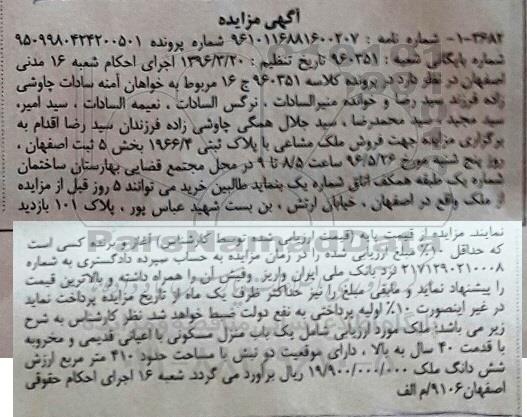 آگهی مزایده
۱-۳۶۸۲- شماره نامه : ۹۶۱۰۱۱۶۸۸۱۶۰۰۲۰۷ شماره پرونده ۹۵۰۹۹۸۰۴۲۴۲۰۰۵۰۱
شماره بایگانی شعبه : ۹۶۰۳۵۱ تاریخ تنظیم : ۱۳۹۶/۳/۲۰ اجرای احکام شعبه ۱۶ مدنی
اصفهان در نظر دارد در پرونده کلاسه ۹۶۰۳۵۱ ج ۱۶ مربوط به خواهان آمنه سادات چاوشی
زاده فرزند سید رضا و خوانده منیرالسادات ، نرگس السادات ، نعیمه السادات ، سید امیر،
سید مجید ، سید محمدرضا ، سید جلال همگی چاوشی زاده فرزندان سید رضا اقدام به
برگزاری مزایده جهت فروش ملک مشاعی با پلاک ثبتی ۱۹۶۶/۴ بخش ۵ ثبت اصفهان ،
روز پنج شنبه مورخ ۹۶/۵/۲۶ ساعت ۸/۵ تا ۹ در محل مجتمع قضایی بهارستان ساختمان
شماره یک طبقه همکف اتاق شماره یک بنماید طالبین خرید می توانند ۵ روز قبل از مزایده
از ملک واقع در اصفهان ، خیابان ارتش ، بن بست شهید عباس پور ، پلاک ۱۰۱ بازدید
نمایند. مزایده از قیمت پایه (قیمت ارزیابی شده توسط کارشناس) آغاز و برنده کسی است
که حداقل ۱۰٪ مبلغ ارزیابی شده را در زمان مزایده به حساب سپرده دادگستری به شماره
۲۱۷۱۲۹۰۲۱۰۰۰۸ نزد بانک ملی ایران واریز وفیش آن را همراه داشته و بالاترین قیمت
را پیشنهاد نماید و مابقی مبلغ را نیز حداکثر ظرف یک ماه از تاریخ مزایده پرداخت نماید
در غیر اینصورت ۱۰٪ اولیه پرداختی به نفع دولت ضبط خواهد شد. نظر کارشناس به شرح
زیر می باشد: ملک مورد ارزیابی شامل یک باب منزل مسکونی با اعیانی قدیمی و مخروبه
با قدمت ۴۰ سال به بالا ، دارای موقعیت دو نبش با مساحت حدود ۴۱۰ متر مربع ارزش
شش دانگ ملک ۱۹/۹۰۰/۰۰۰/۰۰۰ ریال برآورد می گردد. شعبه ۱۶ اجرای احکام حقوقی
اصفهان ۹۱۰۶/م الف